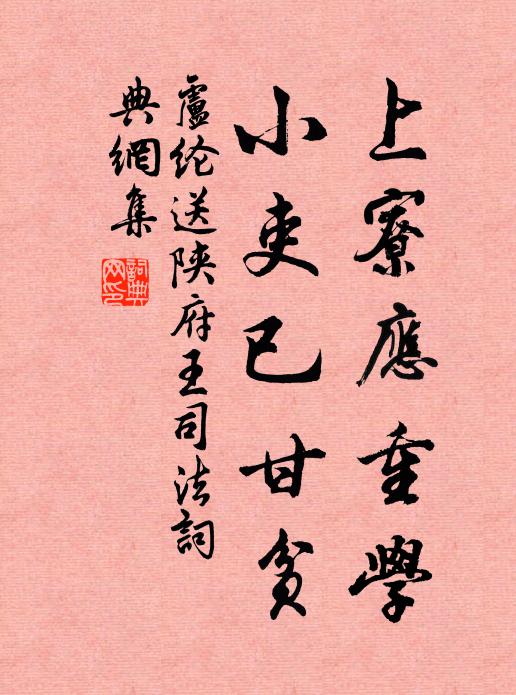 上寮應重學
小吏已甘貧
盧纶送陕府王司法詞
典網集
詞典
网印